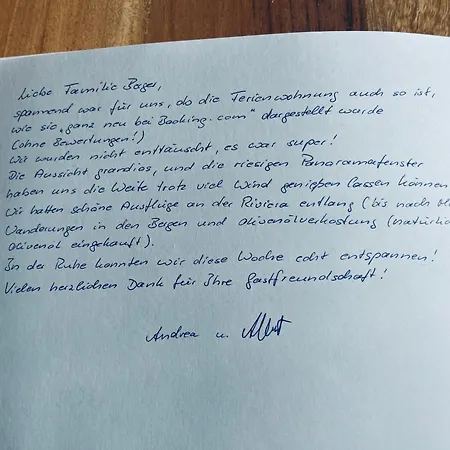 Liebe Familie Bager,
spannend war für uns, ob die Ferienwohnung auch so ist,
wie sie „ganz neu bei Booking.com“ dargestellt wurde
(ohne Bewertungen!)
Wir wurden nicht enttäuscht, es war super!
Die Aussicht grandios, und die riesigen Panoramafenster
haben uns die Weite trotz viel Wind genießen lassen können
Wir hatten schöne Ausflüge an der Riviera entlang (bis nach
Wanderungen in den Bergen und Olivenölverkostung (natürlic
Olivenöl eingekauft).
In der Ruhe konnten wir diese Woche echt entspannen!
Vielen herzlichen Dank für Ihre Gastfreundschaft!
Andrea u.